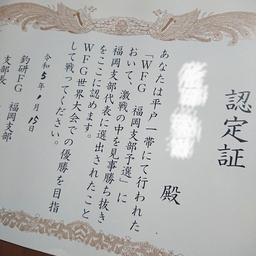 認定証
殿
あなたは平戸一帯にて行われた
「WFG 福岡支部予選」に
おいて、激戦の中を見事勝ち抜き
福岡支部代表に選出されたこと
をここに認めます。
WFG世界大会での優勝を目指
して戦ってください。
令和5年 月15日
釣研FG 福岡支部
支部長